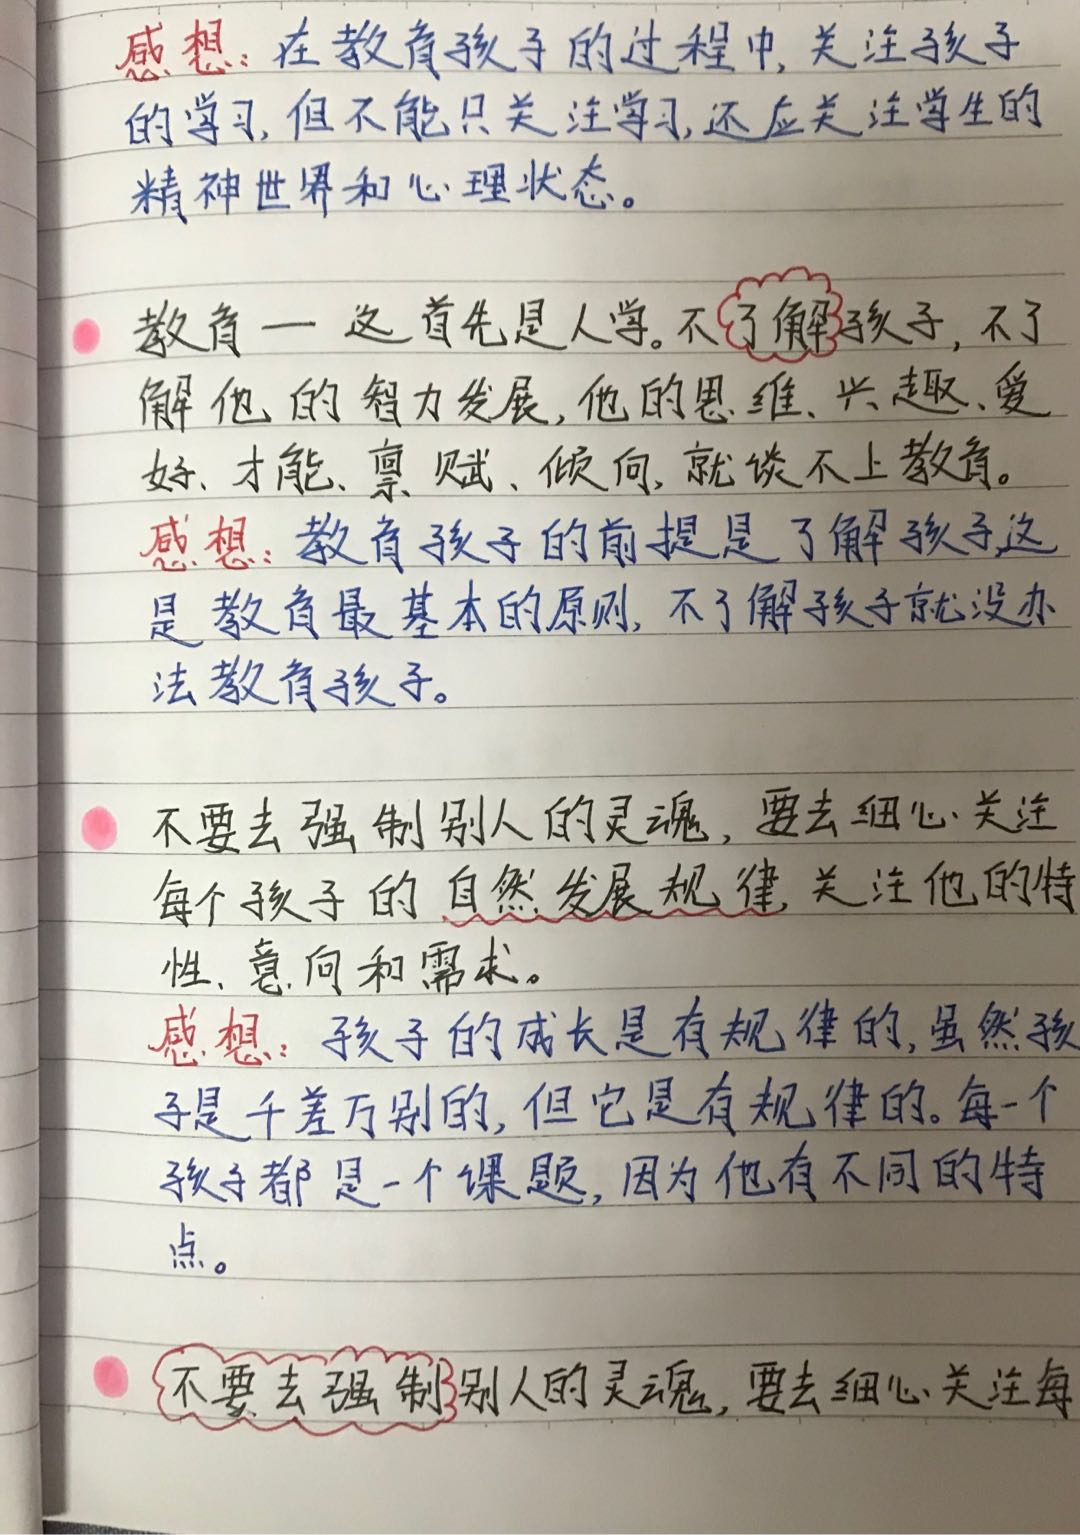 感想：在教育孩子的过程中，关注孩子
的学习，但不能只关注学习，还应关注学生的
精神世界和心理状态。
教育一这首先是人学。不了解孩子，不了
解他的智力发展，他的思维、兴趣、爱
好、才能、禀赋、倾向，就谈不上教育。
感想：教育孩子的前提是了解孩子，这
是教育最基本的原则，不了解孩子就没办
法教育孩子。
不要去强制别人的灵魂，要去细心关注
每个孩子的自然发展规律，关注他的特
性、意向和需求。
感想：孩子的成长是有规律的，虽然孩
子是千差万别的，但它是有规律的。每一个
孩子都是一个课题，因为他有不同的特
点。
不要去强制别人的灵魂，要去细心关注每